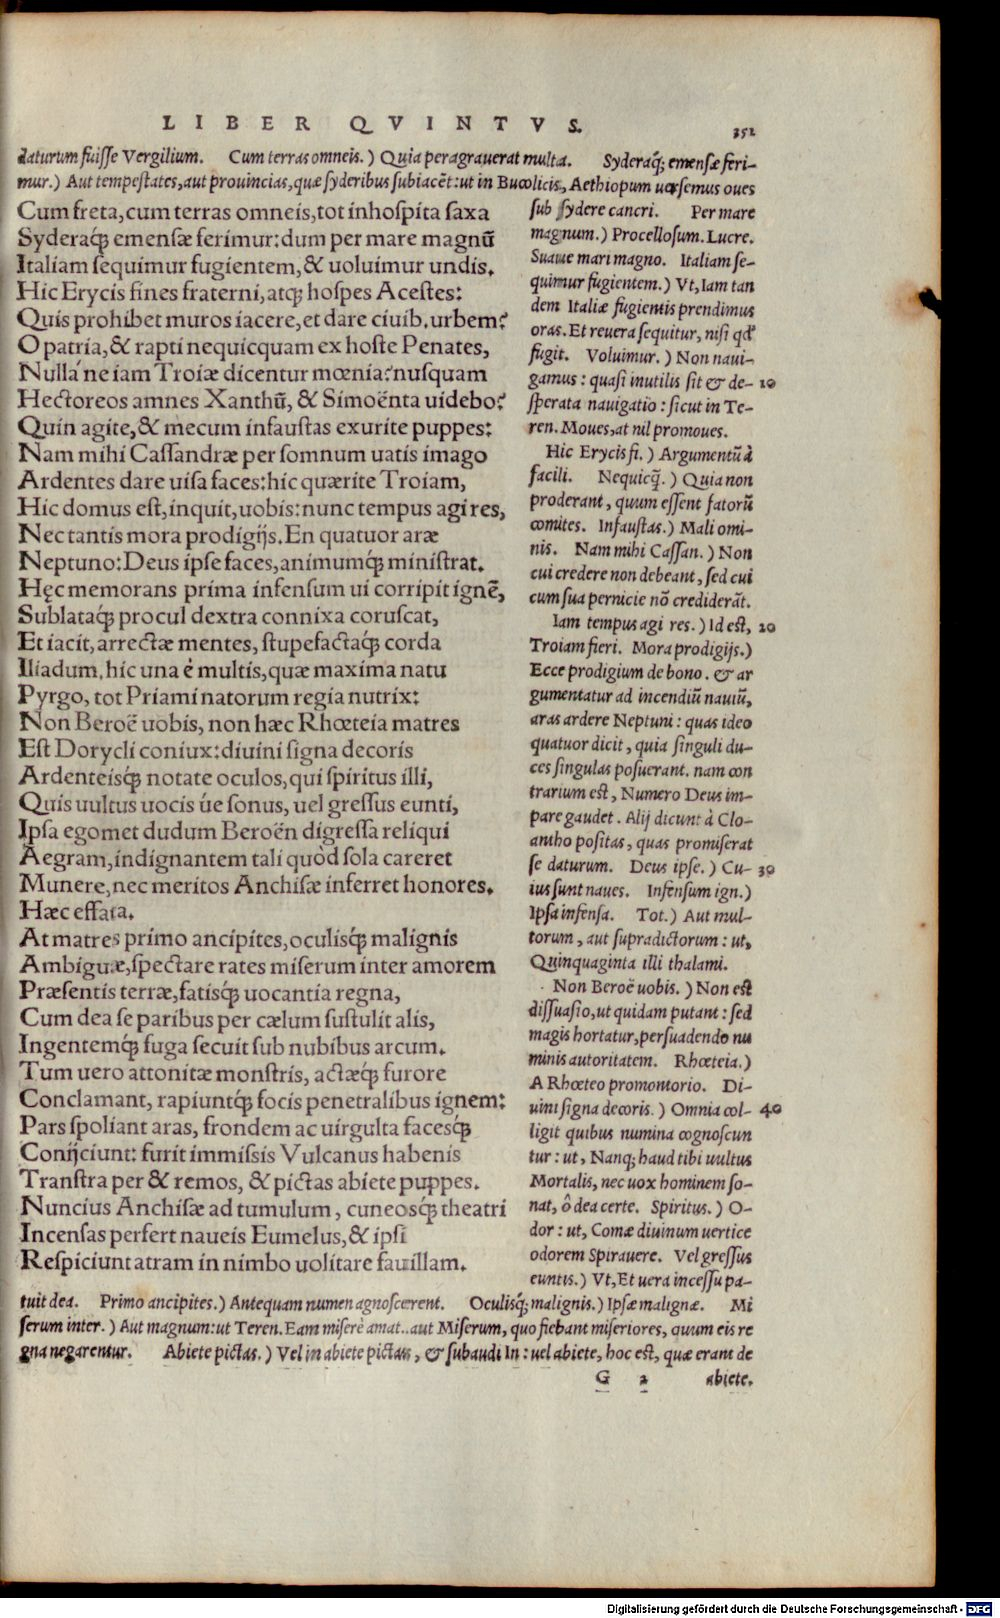 LIBER QVINTVS.
352
daturum fuisse Vergilium. Cum terras omneis.) Quia peragrauerat multa. Syderaq́; emensæ feri-
mur.) Aut tempestates, aut prouincias, quæ syderibus subiacēt: ut in Bucolicis, Aethiopum uersemus oues
Cum freta, cum terras omneis, tot inhospita saxa
Syderaq́; emensæ ferimur: dum per mare magnū
Italiam sequimur fugientem, & uoluimur undis.
Hic Erycis fines fraterni, atq; hospes Acestes:
Quis prohibet muros iacere, et dare ciuib. urbem?
O patria, & rapti nequicquam ex hoste Penates,
Nulla ne iam Troiæ dicentur mœnia? nusquam
Hectoreos amnes Xanthū, & Simoënta uidebo?
Quin agite, & mecum infaustas exurite puppes:
Nam mihi Cassandræ per somnum uatis imago
Ardentes dare uisa faces: hic quærite Troiam,
Hic domus est, inquit, uobis: nunc tempus agi res,
Nec tantis mora prodigijs. En quatuor aræ
Neptuno: Deus ipse faces, animumq́; ministrat.
Hęc memorans prima infensum ui corripit ignē,
Sublataq́; procul dextra connixa coruscat,
Et iacit, arrectæ mentes, stupefactaq́; corda
Iliadum, hic una é multis, quæ maxima natu
Pyrgo, tot Priami natorum regia nutrix:
Non Beroë uobis, non hæc Rhœteia matres
Est Dorycli coniux: diuini signa decoris
Ardenteisq́; notate oculos, qui spiritus illi,
Quis uultus uocis úe sonus, uel gressus eunti,
Ipsa egomet dudum Beroën digressa reliqui
Aegram, indignantem tali quòd sola careret
Munere, nec meritos Anchisæ inferret honores.
Hæc effata.
At matres primo ancipites, oculisq́; malignis
Ambiguæ, spectare rates miserum inter amorem
Præsentis terræ, fatisq́; uocantia regna,
Cum dea se paribus per cælum sustulit alis,
Ingentemq́; fuga secuit sub nubibus arcum.
Tum uero attonitæ monstris, actæq́; furore
Conclamant, rapiuntq́; focis penetralibus ignem:
Pars spoliant aras, frondem ac uirgulta facesq́;
Conijciunt: furit immissis Vulcanus habenis
Transtra per & remos, & pictas abiete puppes.
Nuncius Anchisæ ad tumulum, cuneosq́; theatri
Incensas perfert naueis Eumelus, & ipsi
Respiciunt atram in nimbo uolitare fauillam.
sub sydere cancri. Per mare
magnum.) Procellosum. Lucre.
Suaue mari magno. Italiam se-
quimur fugientem.) Vt, Iam tan
dem Italiæ fugientis prendimus
oras. Et reuera sequitur, nisi qd'
fugit. Voluimur.) Non naui-
gamus: quasi inutilis sit & de- 10
sperata nauigatio: sicut in Te-
ren. Moues, at nil promoues.
Hic Erycis fi.) Argumentū à
facili. Nequicq̄.) Quia non
proderant, quum essent fatorū
comites. Infaustas.) Mali omi-
nis. Nam mihi Cassan.) Non
cui credere non debeant, sed cui
cum sua pernicie nō crediderāt.
Iam tempus agi res.) Id est, 20
Troiam fieri. Mora prodigijs.)
Ecce prodigium de bono. & ar
gumentatur ad incendiū nauiū,
aras ardere Neptuni: quas ideo
quatuor dicit, quia singuli du-
ces singulas posuerant. nam con
trarium est, Numero Deus im-
pare gaudet. Alij dicunt à Clo-
antho positas, quas promiserat
se daturum. Deus ipse.) Cu- 30
ius sunt naues. Infensum ign.)
Ipsa infensa. Tot.) Aut mul-
torum, aut supradictorum: ut,
Quinquaginta illi thalami.
Non Beroë uobis.) Non est
dissuasio, ut quidam putant: sed
magis hortatur, persuadendo nu
minis autoritatem. Rhœteia.)
A Rhœteo promontorio. Di-
uini signa decoris.) Omnia col- 40
ligit quibus numina cognoscun
tur: ut, Nanq; haud tibi uultus
Mortalis, nec uox hominem so-
nat, ô dea certe. Spiritus.) O-
dor: ut, Comæ diuinum uertice
odorem Spirauere. Vel gressus
euntis.) Vt, Et uera incessu pa-
tuit dea. Primo ancipites.) Antequam numen agnoscerent. Oculisq́; malignis.) Ipsæ malignæ. Mi
serum inter.) Aut magnum: ut Teren. Eam miserè amat. aut Miserum, quo fiebant miseriores, quum eis re
gna negarentur. Abiete pictas.) Vel in abiete pictas, & subaudi In: uel abiete, hoc est, quæ erant de
G 2 abiete.
Digitalisierung gefördert durch die Deutsche Forschungsgemeinschaft - DFG